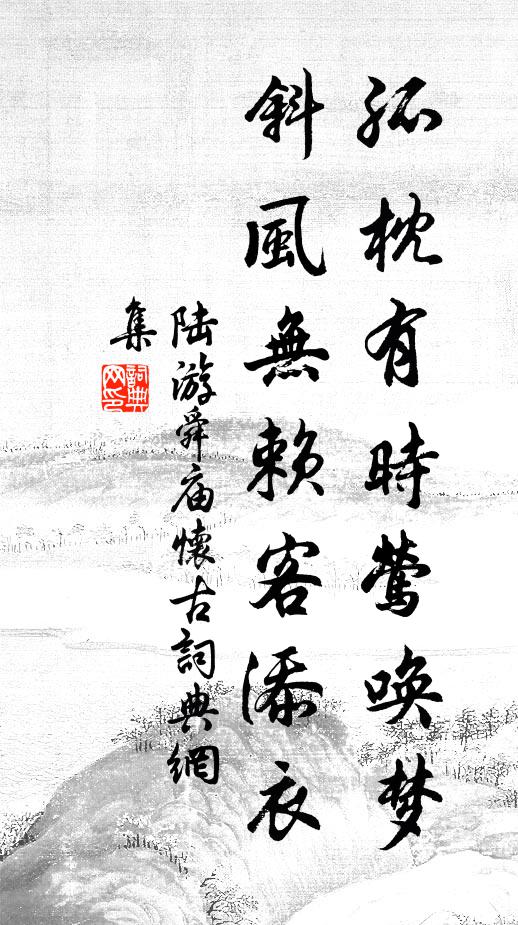 孤枕有時鶯喚梦
斜風無賴客添衣
陆游舜庙懷古詞典網
集
詞典
网印